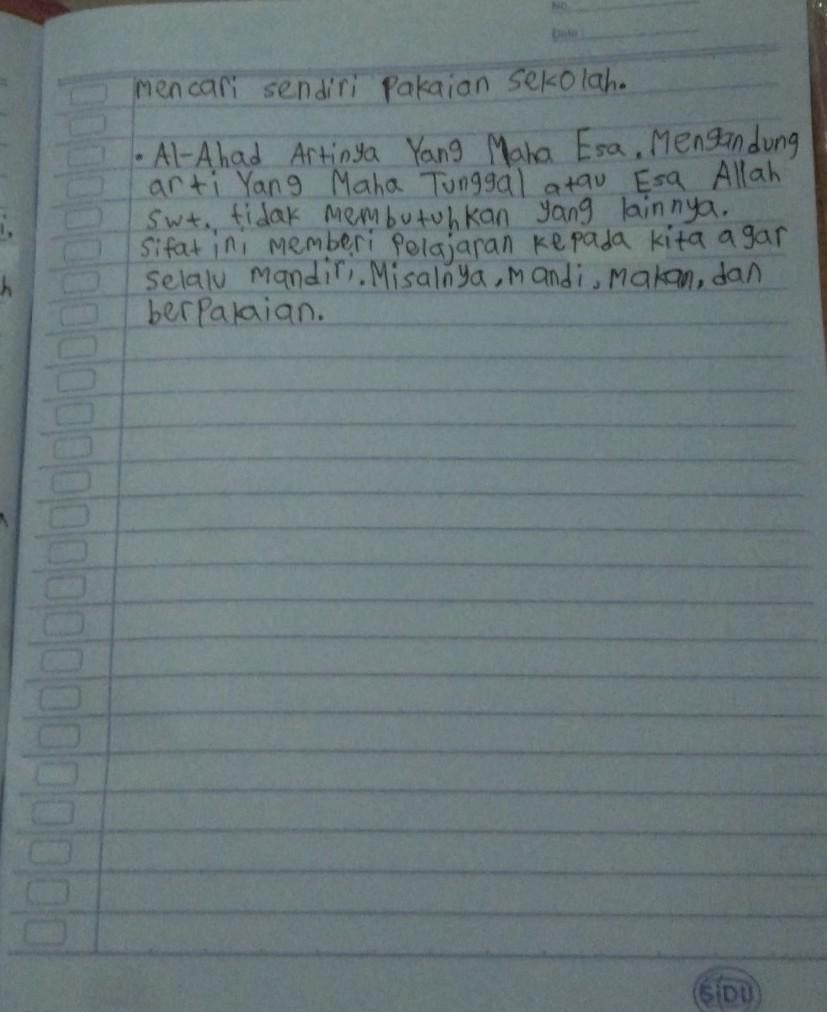 No.
Date
mencari sendiri Pakaian sekolah.
• Al-Ahad Artinya Yang Maha Esa, Mengandung
arti Yang Maha Tunggal atau Esa Allah
swt. tidak membutuhkan yang lainnya.
Sifat ini memberi Pelajaran kepada kita agar
selalu mandiri. Misalnya, mandi, makan, dan
berpakaian.
SIDU